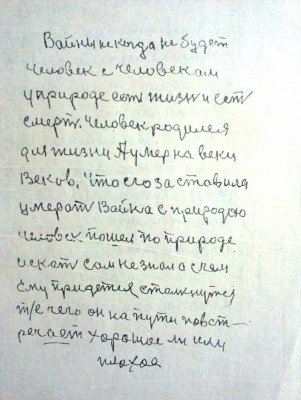 Война некогда не будет
человек с человекам
у природе есть жизн и есть
смерть. Человек родился
для жизни А умер на веки
веков, что его заставила
умерать Вайна с природою
человек пошел по природе
искать сам не знал а с чем
ему придется столкнутся
т/е чего он на пути повст-
речает хорошое ли или
плохоя